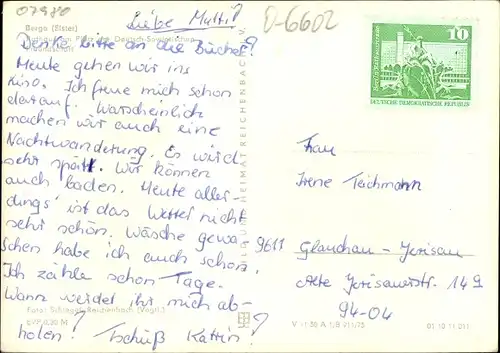 07980
O-6602
Liebe Mutti!
Berga (Elster)
Denke bitte an die Bücher!
Heute gehen wir ins
Kino. Ich freue mich schon
darauf. Warscheinlich
machen wir auch eine
Nachtwanderung. Es wird
sehr spät. Wir können
auch baden. Heute aller-
dings ist das Wetter nicht
sehr schön. Wäsche gewa-
schen habe ich auch schon.
Ich zähle schon Tage.
Wann werdet ihr mich ab-
holen? Tschüß Katrin!
Foto: Schlegel, Reichenbach (Vogtl.)
EVP 0,20 M
BILD UND HEIMAT REICHENBACH I. V.
10
DEUTSCHE DEMOKRATISCHE REPUBLIK
Frau
Irene Teichmann
9611 Glauchau-Jerisau
Alte Jerisauerstr. 149
94-04
01 10 11 011